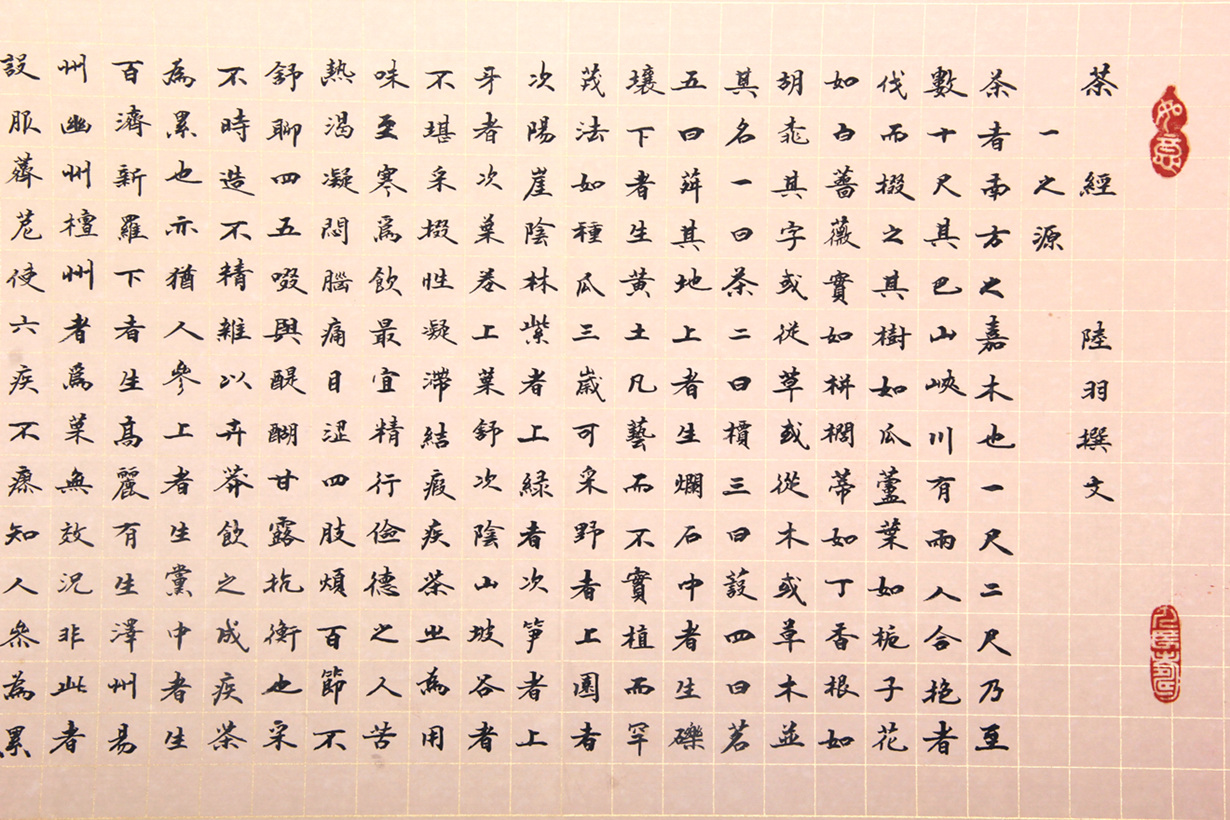 如意
茶經 陸羽撰文
一之源
茶者南方之嘉木也一尺二尺乃至
數十尺其巴山峽川有兩人合抱者
伐而掇之其樹如瓜蘆葉如梔子花
如白薔薇實如栟櫚蒂如丁香根如
胡桃其字或從草或從木或草木並
其名一曰茶二曰檟三曰蔎四曰茗
五曰荈其地上者生爛石中者生礫
壤下者生黃土凡藝而不實植而罕
茂法如種瓜三歲可采野者上園者
次陽崖陰林紫者上綠者次笋者上
牙者次葉卷上葉舒次陰山坡谷者
不堪采掇性凝滯結瘕疾茶之為用
味至寒為飲最宜精行儉德之人苦
熱渴凝悶腦痛目澀四肢煩百節不
舒聊四五啜與醍醐甘露抗衡也采
不時造不精雜以卉莽飲之成疾茶
為累也亦猶人參上者生黨中者生
百濟新羅下者生高麗有生澤州易
州幽州檀州者為藥無效況非此者
設服薺苨使六疾不瘳知人參為累